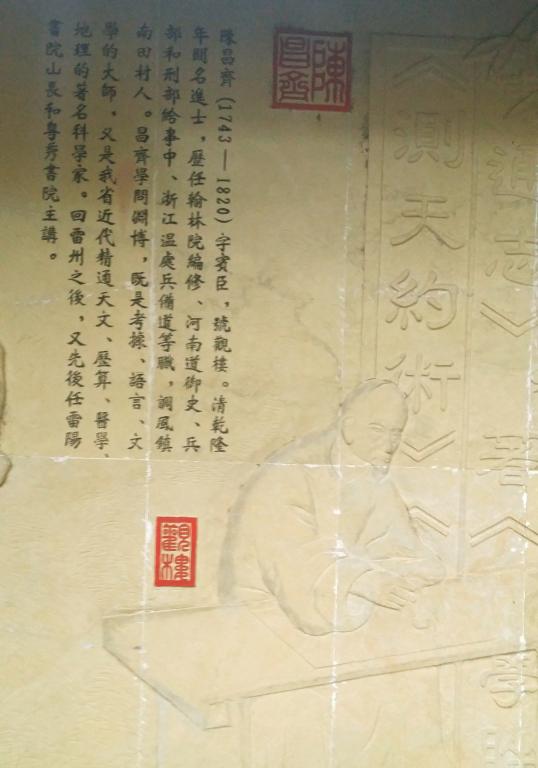 通志》
《測天約術》《
陳昌齊
陳昌齊 (1743—1820) 字賓臣，號觀樓。清乾隆
年間名進士，歷任翰林院編修、河南道御史、兵
部和刑部給事中、浙江温處兵備道等職，調風鎮
南田村人。昌齊學問淵博，既是考據、語言、文
學的大師，又是我省近代精通天文、歷算、醫學、
地理的著名科學家。回雷州之後，又先後任雷陽
書院山長和粵秀書院主講。
觀樓